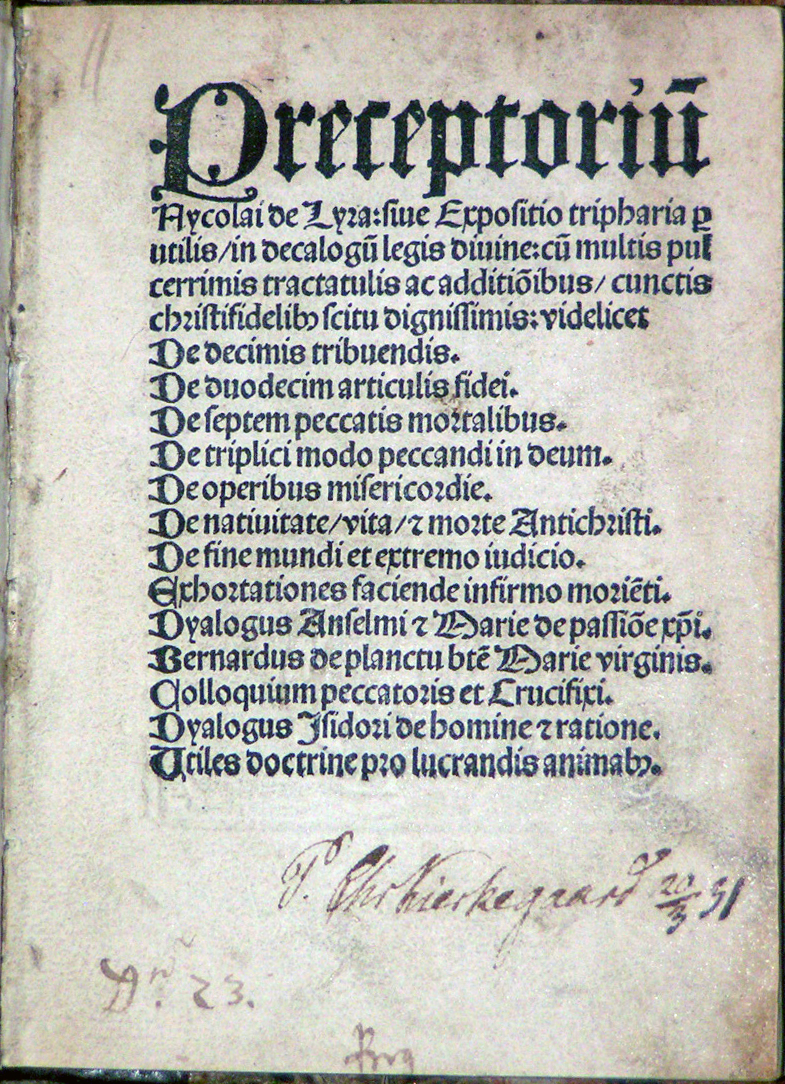 Preceptoriū
Nycolai de Lyra: siue Expositio tripharia ꝑ
utilis/in decalogū legis diuine: cū multis pul
cerrimis tractatulis ac additiōibus/ cunctis
christifidelibꝫ scitu dignissimis: videlicet
De decimis tribuendis.
De duodecim articulis fidei.
De septem peccatis mortalibus.
De triplici modo peccandi in deum.
De operibus misericordie.
De natiuitate/vita/⁊ morte Antichristi.
De fine mundi et extremo iudicio.
Exhortationes faciende infirmo moriēti.
Dyalogus Anselmi ⁊ Marie de passiōe xp̄i.
Bernardus de planctu btē Marie virginis.
Colloquium peccatoris et Crucifixi.
Dyalogus Isidori de homine ⁊ ratione.
Utiles doctrine pro lucrandis animabꝫ.
P. Chr Kierkegaard 20/3 51
23.